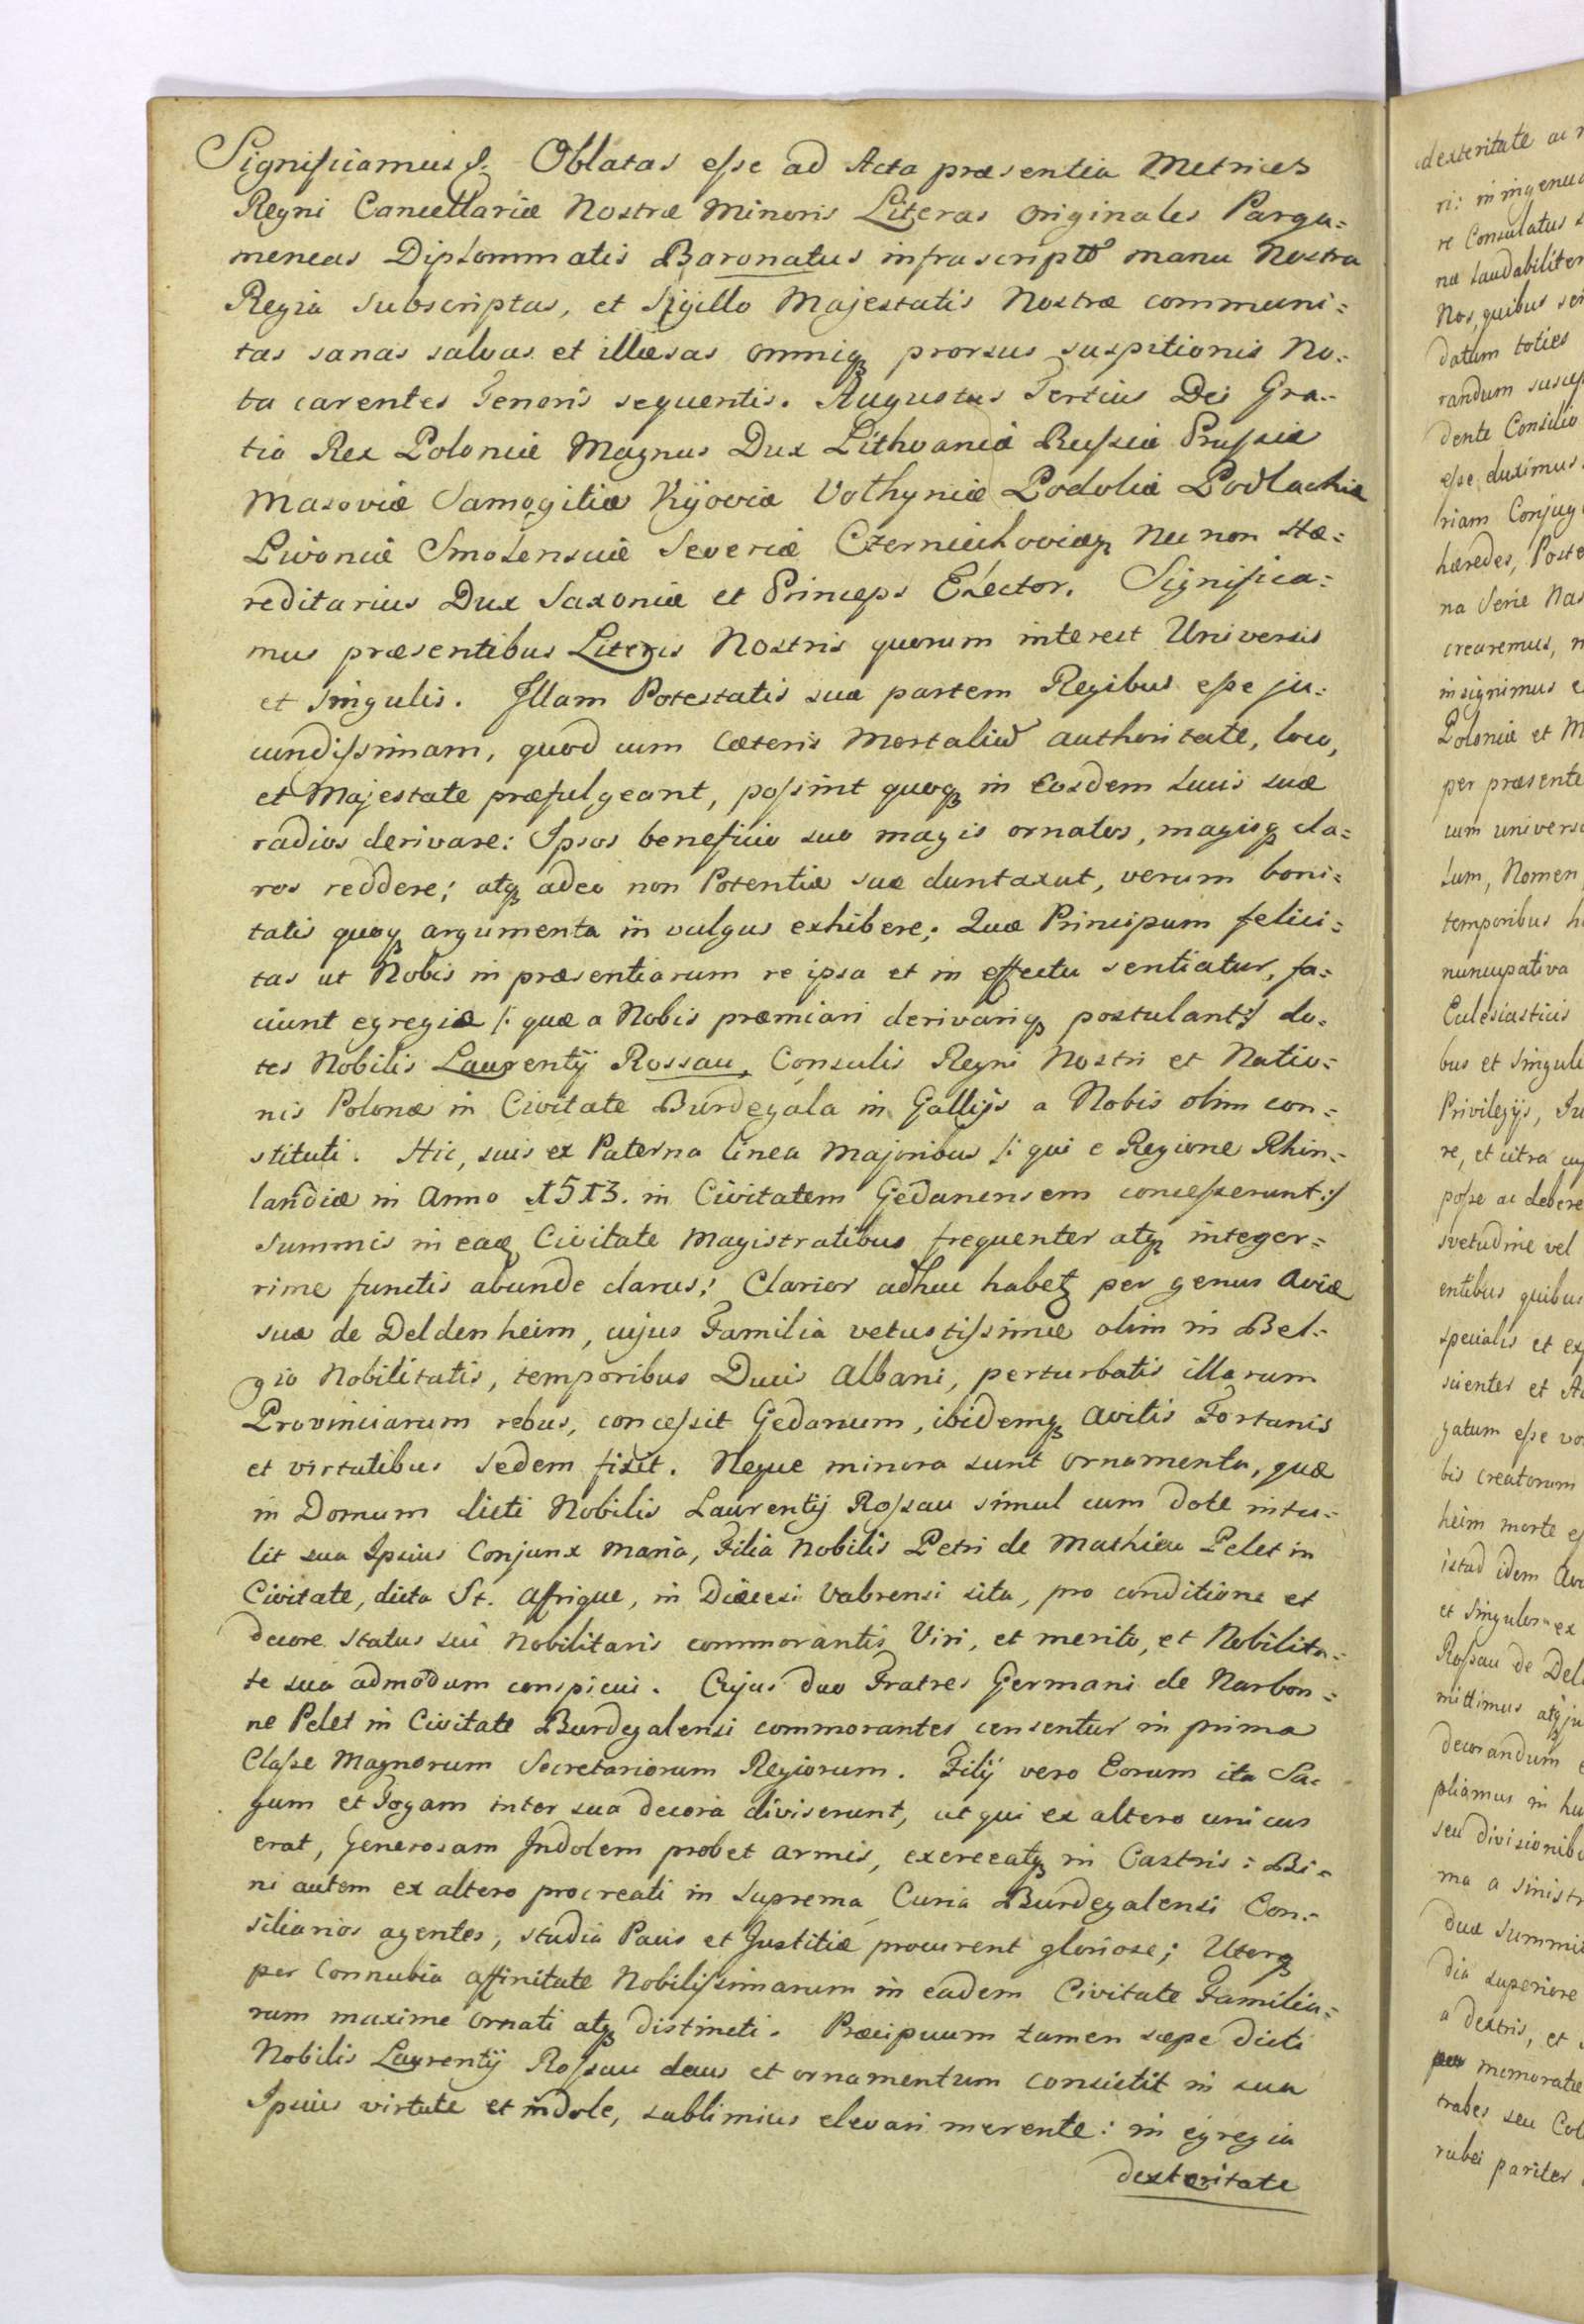 Significamus &. Oblatas esse ad Acta præsentia Metrices
Regni Cancellariæ Nostræ Minoris Literas Originales Parga=
meneas Diplommatis Baronatus infrascripto manu Nostra
Regia subscriptas, et Sigillo Majestatis Nostræ communi=
tas sanas salvas et illæsas omniq prorsus suspitionis No=
ta carentes Tenoris sequentis. Augustus Tertius Dei Gra=
tia Rex Poloniæ Magnus Dux Lithvaniæ Russiæ Prussiæ
Masoviæ Samogitiæ Kijoviæ Volhyniæ Podoliæ Podlachiæ
Livoniæ Smolensciæ Severiæ Czerniechoviæq Nec non Hæ=
reditarius Dux Saxoniæ et Princeps Elector. Significa=
mus præsentibus Literis Nostris quorum interest Universis
et singulis. Illam Potestatis suæ partem Regibus esse ju=
cundissimam, quod cum Cæteris Mortaliū authoritate, loco,
et Majestate præfulgeant, possint quoq in Eosdem Lucis suæ
radios derivare: Ipsos beneficio suo magis ornatos, magisq cla=
ros reddere; atq adeo non Potentiæ suæ duntaxat, verum boni=
tatis quoq argumenta in vulgus exhibere; Quæ Principum felici=
tas ut Nobis in præsentiarum re ipsa et in effectu sentiatur, fa=
ciunt egregiæ /: quæ a Nobis præmiari derivariq postulant :/ do=
tes Nobilis Laurentij Rossau, Consulis Regni Nostri et Natio=
nis Polonæ in Civitate Burdegala in Gallijs a Nobis olim con=
stituti. Hic, suis ex Paterna linea Majoribus /: qui e Regione Rhin=
landiæ in Anno 1513. in Civitatem Gedanensem concesserunt :/
summis in eaq Civitate Magistratibus frequenter atq integer=
rime functis abunde clarus; Clarior adhuc habetz per genus Aviæ
suæ de Deldenheim, cujus Familia vetustissimæ olim in Bel=
gio Nobilitatis, temporibus Ducis Albani, perturbatis illarum
Provinciarum rebus, concessit Gedanum, ibidemq avitis Fortunis
et virtutibus Sedem fixit. Neque minora sunt Ornamenta, quæ
in Domum dicti Nobilis Laurentij Rossau simul cum dote intu=
lit sua Ipsius Conjunx Maria, Filia Nobilis Petri de Mathieu Pelet in
Civitate, dicta St. Affrique, in Diæcesi Vabrensi sita, pro conditione et
decore status sui Nobilitaris commorantis Viri, et merito, et Nobilita=
te sua admodum conspicui. Cujus duo Fratres Germani de Narbon=
ne Pelet in Civitate Burdegalensi commorantes censentur in prima
Classe Magnorum Secretariorum Regiorum. Filij vero Eorum ita Sa=
gum et Togam inter sua decora diviserunt, ut qui ex altero unicus
erat, Generosam Indolem probet armis, exerceatq in Castris: Bi=
ni autem ex altero procreati in Suprema Curia Burdegalensi Con=
siliarios agentes, studia Pacis et Justitiæ procurent gloriose; Uterq
per Connubia affinitate Nobilissimarum in eadem Civitate Familia=
rum maxime Ornati atq distincti. Præcipuum tamen sæpe dicti
Nobilis Laurentij Rossau decus et ornamentum consistit in sua
Ipsius virtute et indole, sublimius elevari merente: in egregia
dexteritate
dexteritate ac
ri: in ingenua
re Consulatus
na laudabiliter
Nos, quibus
datum toties
randum suscep
dente Consilio
esse duximus
riam Conjug
hæredes, Poste
na Serie Nas
crearemus,
insignimus
Poloniæ et M
per præsente
cum universo
lum, Nomen
temporibus
nuncupativa
Eclesiasticis
bus et singuli
Privilegijs, Iu
re, et citra
posse ac debere
svetudine vel
entibus quibus
specialis et ex
scientes et
gatum esse vo
bis creatorum
heim morte
istud idem
et Singulos ex
Rossau de Del
mittimus atq ju
decorandum
pliamus in hu
seu divisionib
ma a sinistr
duæ Summi
dia superiore
a dextris, et
memoratæ
trabes seu Col
rubei pariter